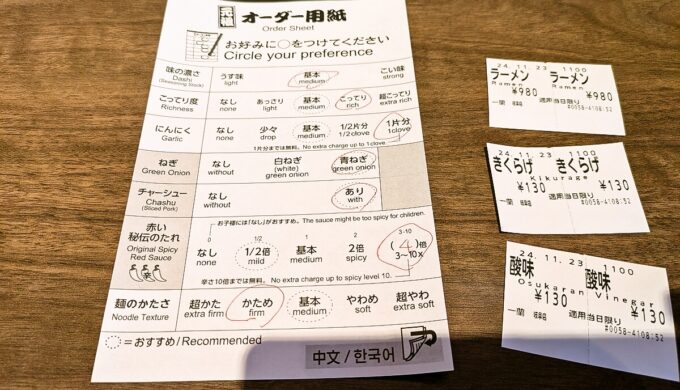 元祖 オーダー用紙
Order Sheet
お好みに○をつけてください
Circle your preference
味の濃さ うす味 基本 こい味
Dashi light medium strong
(Seasoning Stock)
こってり度 なし あっさり 基本 こってり 超こってり
Richness none light medium rich extra rich
にんにく なし 少々 基本 1/2片分 1片分
Garlic none drop medium 1/2clove 1clove
1片分までは無料。No extra charge up to 1clove
ねぎ なし 白ねぎ 青ねぎ
Green Onion without (white) green onion
green onion
チャーシュー なし あり
Chashu without with
(Sliced Pork)
お子様には「なし」がおすすめ。The sauce might be too spicy for children.
赤い 0 1/2 1 2 3-10
秘伝のたれ なし 1/2倍 基本 2倍 (4)倍
Original Spicy none mild medium spicy 3~10x
Red Sauce
辛さ10倍までは無料。No extra charge up to spicy level 10.
麺のかたさ 超かた かため 基本 やわめ 超やわ
Noodle Texture extra firm firm medium soft extra soft
=おすすめ/Recommended
中文/한국어
24.11.23 1100
ラーメン ラーメン
Ramen Ramen
¥980 ¥980
一蘭 適用当日限り
#0058-4108:52
24.11.23 1100
きくらげ きくらげ
Kikurage
¥130 ¥130
一蘭 適用当日限り
#0058-4108:52
24.11.23 1100
酸味 酸味
Osukaran Vinegar
¥130 ¥130
一蘭 適用当日限り
#0058-4108:52